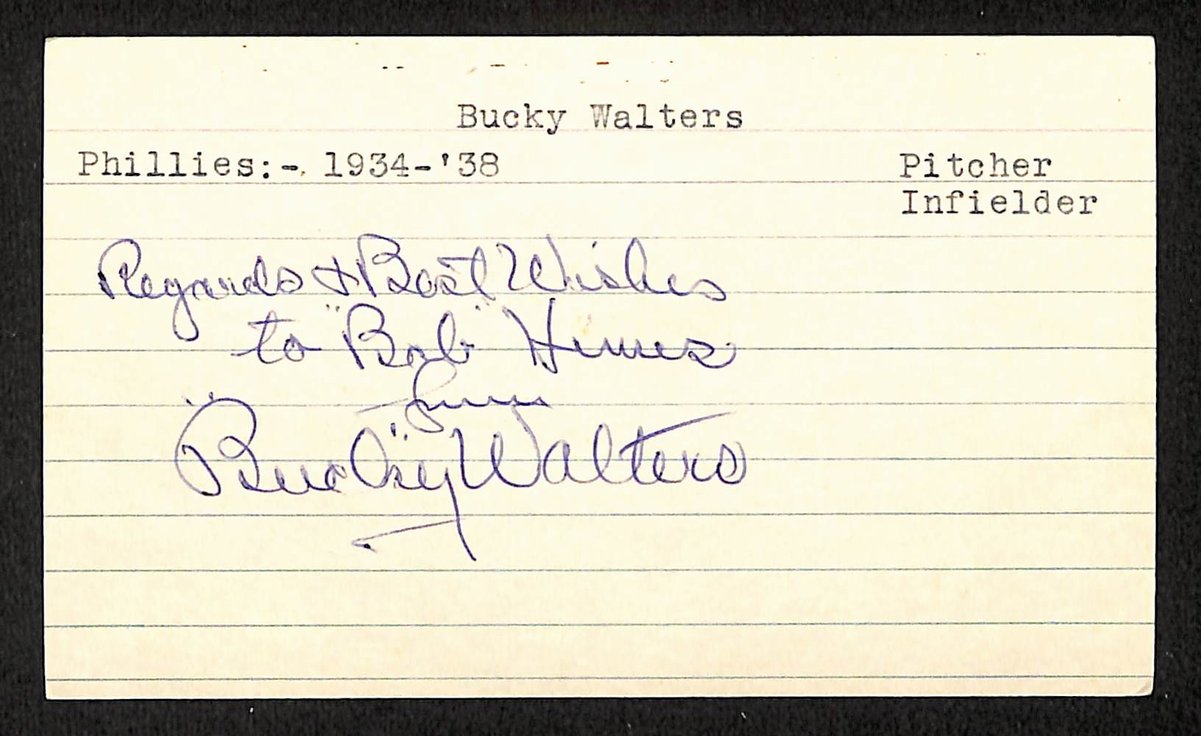 Bucky Walters
Phillies:-. 1934-'38 Pitcher
Infielder
Regards & Best Wishes
to "Bob" Himes
from
"Bucky" Walters